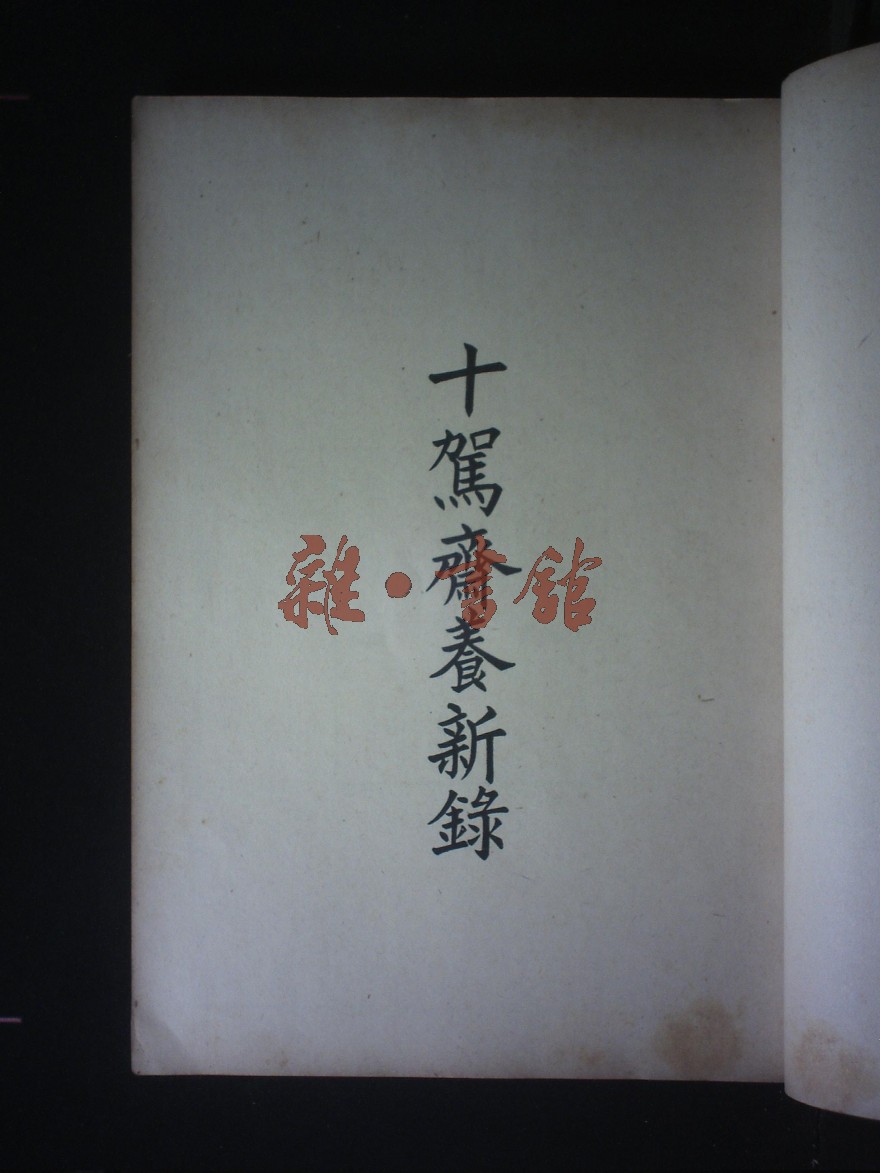 十駕齋養新錄
雜·書館